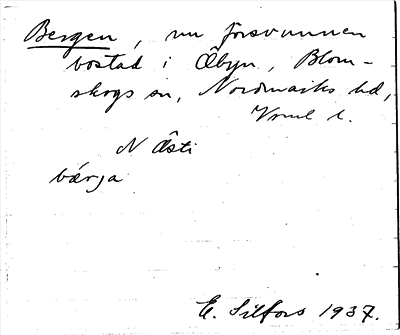 Bergen, nu försvunnen
bostad i Åbyn, Blom-
skogs sn, Nordmarks hd,
Vrml l.
N Östi
bärja
E. Silfors 1937.